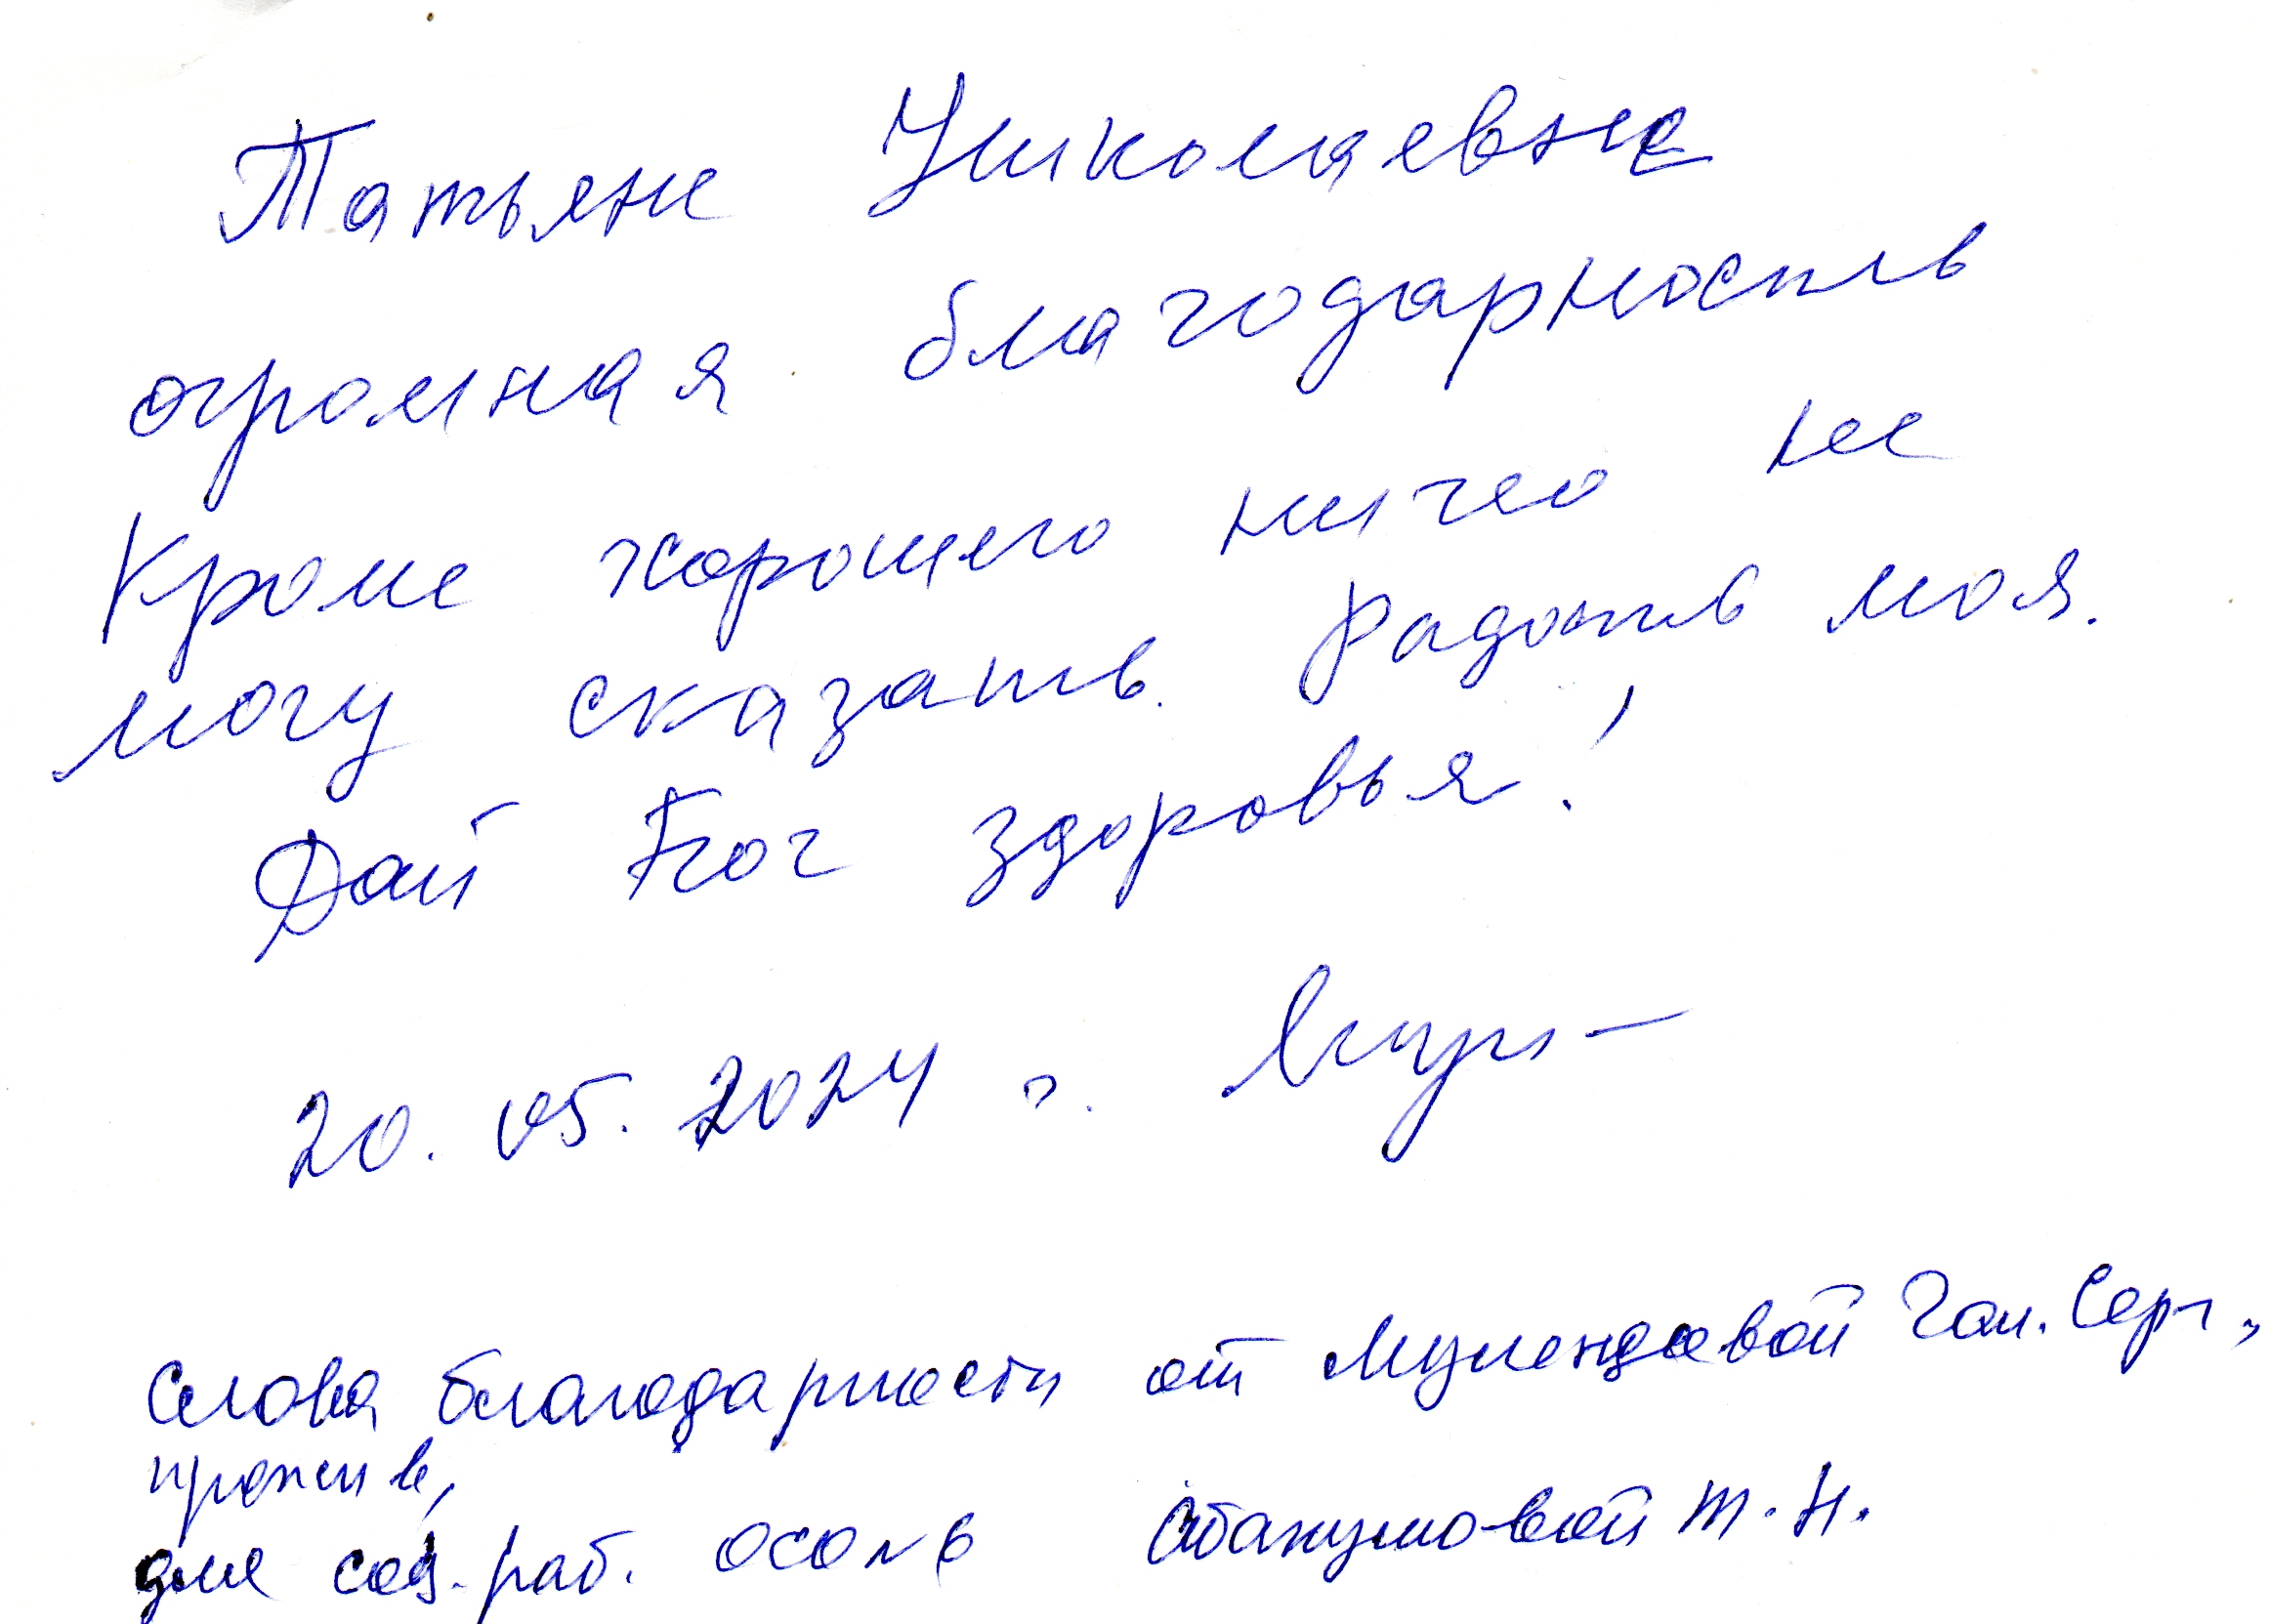 Татьяне Николаевне
огромная благодарность
Кроме хорошего ничего не
могу сказать. Радость моя.
Дай Бог здоровья!
20.05.2024 г.
Слова благодарности от Гал. Серг.,
прожив,
для соц. раб. ОСОЛ Абакумовой Т.Н.